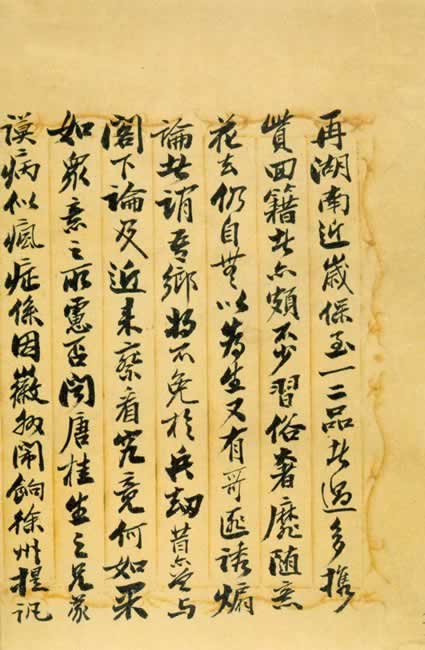 再湖南近歲保至一二品者過多攜
貲回籍者亦頗不少習俗奢靡隨意
花去仍自無以為生又有哥匪誘煽
論者謂吾鄉將不免於兵劫昔与
閣下論及近來察看究竟何如果
如眾意之所慮否聞唐桂生之兄義
謨病似瘋症係因徽州鬧餉徐州提訊